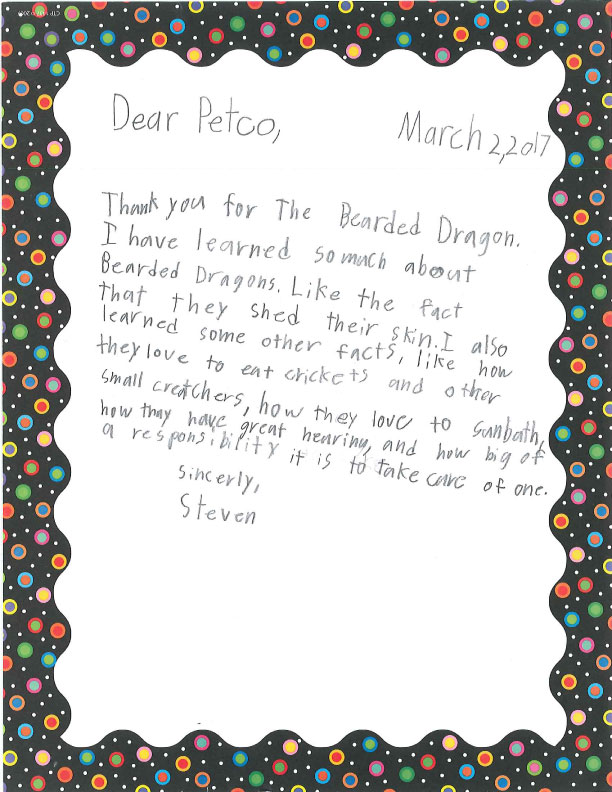 Dear Petco,
March 2, 2017
Thank you for The Bearded Dragon.
I have learned so much about
Bearded Dragons. Like the fact
that they shed their skin. I also
learned some other facts, like how
they love to eat crickets and other
small creatchers, how they love to sunbath,
how thay have great hearing, and how big of
a responsibility it is to take care of one.
Sincerly,
Steven